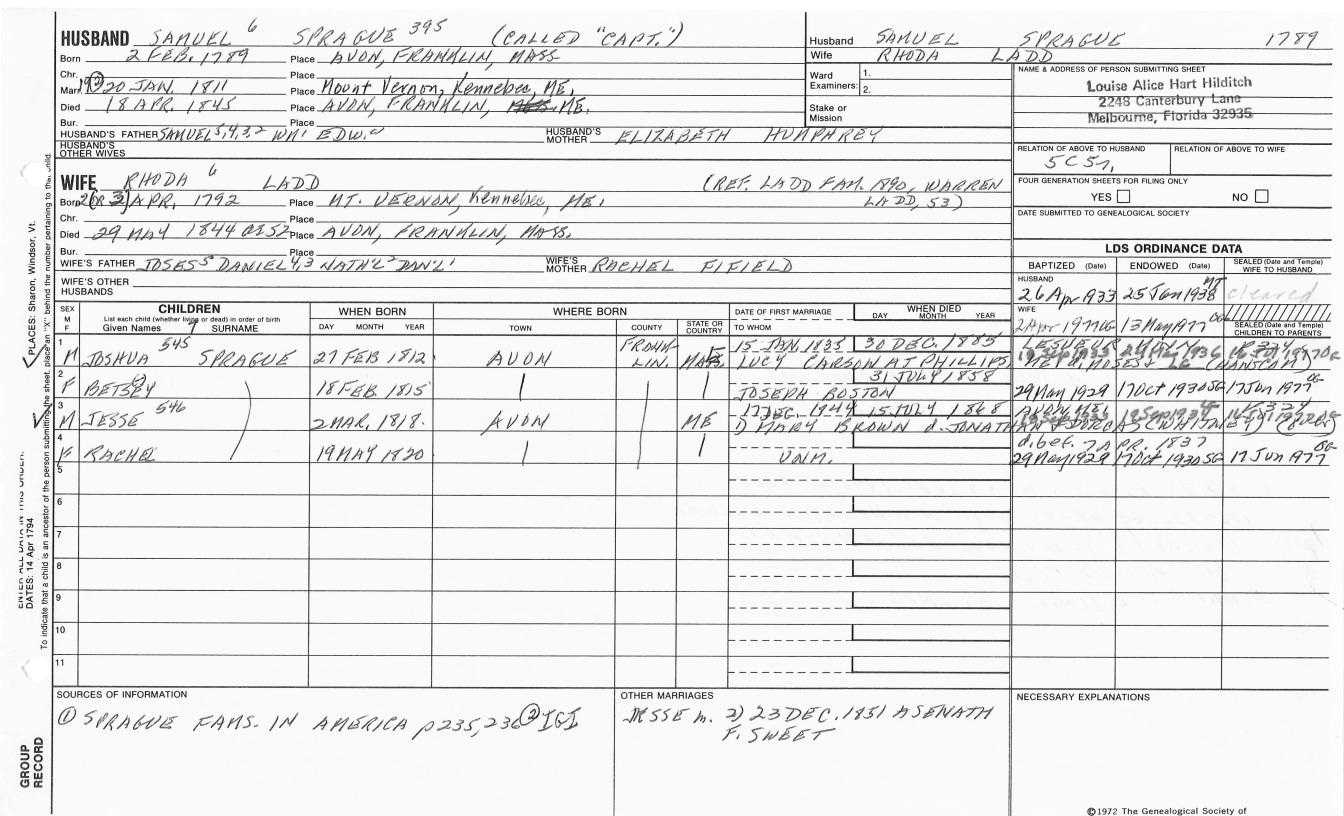 HUSBAND SAMUEL 6 SPRAGUE 395 (CALLED "CAPT.")
Born 2 FEB. 1789 Place AVON, FRANKLIN, MASS
Chr. Place
Marr. 20 JAN. 1811 Place Mount Vernon, Kennebec, ME,
Died 18 APR. 1845 Place AVON, FRANKLIN, ME.
Bur. Place
HUSBAND'S FATHER SAMUEL 5,4,3,2 WM1 EDW.
HUSBAND'S MOTHER ELIZABETH HUMPHREY
HUSBAND'S OTHER WIVES
Husband SAMUEL SPRAGUE 1789
Wife RHODA LADD
Ward 1.
Examiners: 2.
Stake or Mission
NAME & ADDRESS OF PERSON SUBMITTING SHEET
Louise Alice Hart Hilditch
2248 Canterbury Lane
Melbourne, Florida 32935
RELATION OF ABOVE TO HUSBAND
RELATION OF ABOVE TO WIFE
FOUR GENERATION SHEETS FOR FILING ONLY
YES NO
DATE SUBMITTED TO GENEALOGICAL SOCIETY
WIFE RHODA 6 LADD (REF. LADD FAM. 1890, WARREN LADD, 53)
Born 2 (OR 3) APR, 1792 Place MT. VERNON, Kennebec, ME,
Chr. Place
Died 29 MAY 1844 OR 52 Place AVON, FRANKLIN, MASS.
Bur. Place
WIFE'S FATHER JOSES5 DANIEL4,3 NATH'L2 DAN'L1
WIFE'S MOTHER RACHEL FIFIELD
WIFE'S OTHER HUSBANDS
LDS ORDINANCE DATA
BAPTIZED (Date) ENDOWED (Date) SEALED (Date and Temple) WIFE TO HUSBAND
HUSBAND
26 Apr 1933 25 Jan 1938 cleared
WIFE
2 Apr 1977 OG 13 May 1977 OG
SEALED (Date and Temple) CHILDREN TO PARENTS
SEX M F
CHILDREN
List each child (whether living or dead) in order of birth
Given Names 7 SURNAME
WHEN BORN
DAY MONTH YEAR
WHERE BORN
TOWN COUNTY STATE OR COUNTRY
DATE OF FIRST MARRIAGE
TO WHOM
WHEN DIED
DAY MONTH YEAR
1 M JOSHUA 545 SPRAGUE 27 FEB 1812 AVON LIN. 15 JAN. 1835 30 DEC. 1885
LUCY CARSON AT PHILLIPS
2 F BETSEY 18 FEB. 1815 31 JULY 1858
JOSEPH BOSTON 29 May 1929 17 Oct 1930 SG 17 Jun 1977 OG
3 M JESSE 546 2 MAR, 1818. AVON ME 15 JULY 1868
1) MARY BROWN d. JONATHAN
4 F RACHEL 19 MAY 1820 UNM.
d. bef. 7 APR. 1837
29 May 1929 17 Oct 1930 SG 17 Jun 1977 OG
5
6
7
8
9
10
11
SOURCES OF INFORMATION
① SPRAGUE FAMS. IN AMERICA p 235, 236 ② IGI
OTHER MARRIAGES
JESSE m. 2) 23 DEC. 1851 ASENATH
F. SWEET
NECESSARY EXPLANATIONS
©1972 The Genealogical Society of
PLACES: Sharon, Windsor, Vt.
ENTER ALL DATA IN THIS ORDER:
DATES: 14 Apr 1794
To indicate that a child is an ancestor of the person submitting the sheet, place an "X" behind the number pertaining to that child.
GROUP
RECORD